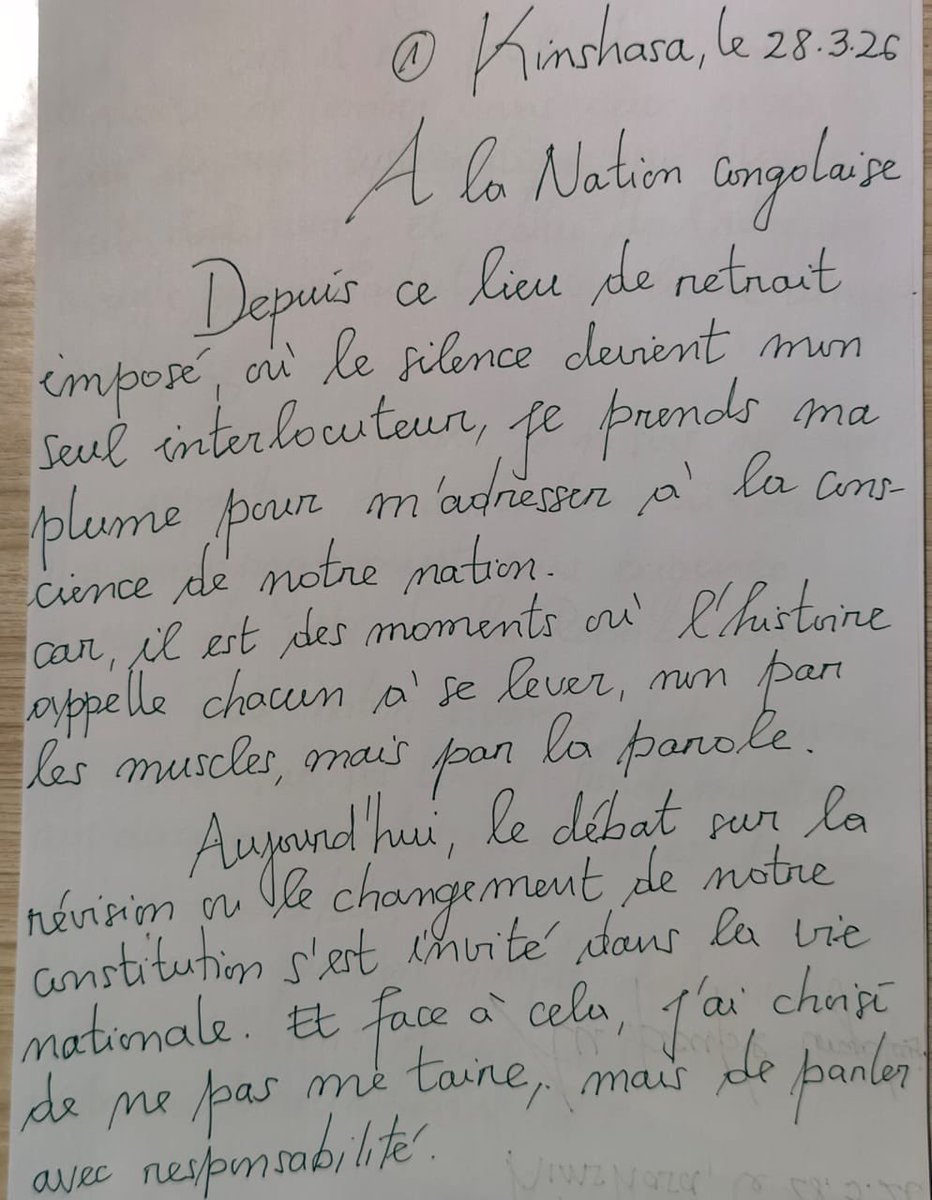 ① Kinshasa, le 28.3.26
A la Nation congolaise
Depuis ce lieu de retrait
imposé, où le silence devient mon
seul interlocuteur, je prends ma
plume pour m'adresser à la cons-
cience de notre nation.
car, il est des moments où l'histoire
appelle chacun à se lever, non par
les muscles, mais par la parole.
Aujourd'hui, le débat sur la
révision ou le changement de notre
constitution s'est invité dans la vie
nationale. Et face à cela, j'ai choisi
de ne pas me taire, mais de parler
avec responsabilité.